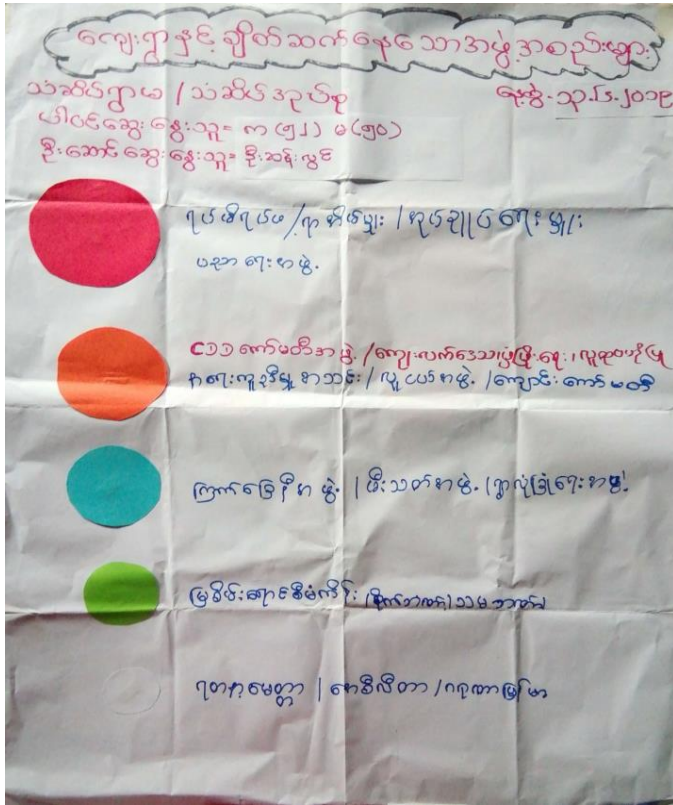 ကျေးရွာနှင့် ချိတ်ဆက်နေသောအဖွဲ့အစည်းများ
သံဆိပ်ရွာမ / သံဆိပ်အုပ်စု
ပါဝင်ဆွေးနွေးသူ = ကျ (၅၂) မ (၅၀)
ဦးဆောင်ဆွေးနွေးသူ = ဦးသန်းလွင်
ရပ်မိရပ်ဖ / ရွာ / အုပ်ချုပ်ရေးမှူး
ပညာရေးအဖွဲ့
CDD ကော်မတီအဖွဲ့ / ကျေးလက်ဒေသဖွံ့ဖြိုးရေး / လူထုဗဟိုပြု
နာရေးကူညီမှုအသင်း / လူငယ်အဖွဲ့ / ကျောင်းကော်မတီ
ကြက်ခြေနီအဖွဲ့ / မီးသတ်အဖွဲ့ / ရွာလုံခြုံရေးအဖွဲ့
မြစိမ်းရောင်စီမံကိန်း
ရတနာ့မေတ္တာ / ဂရုဏာမြန်မာ